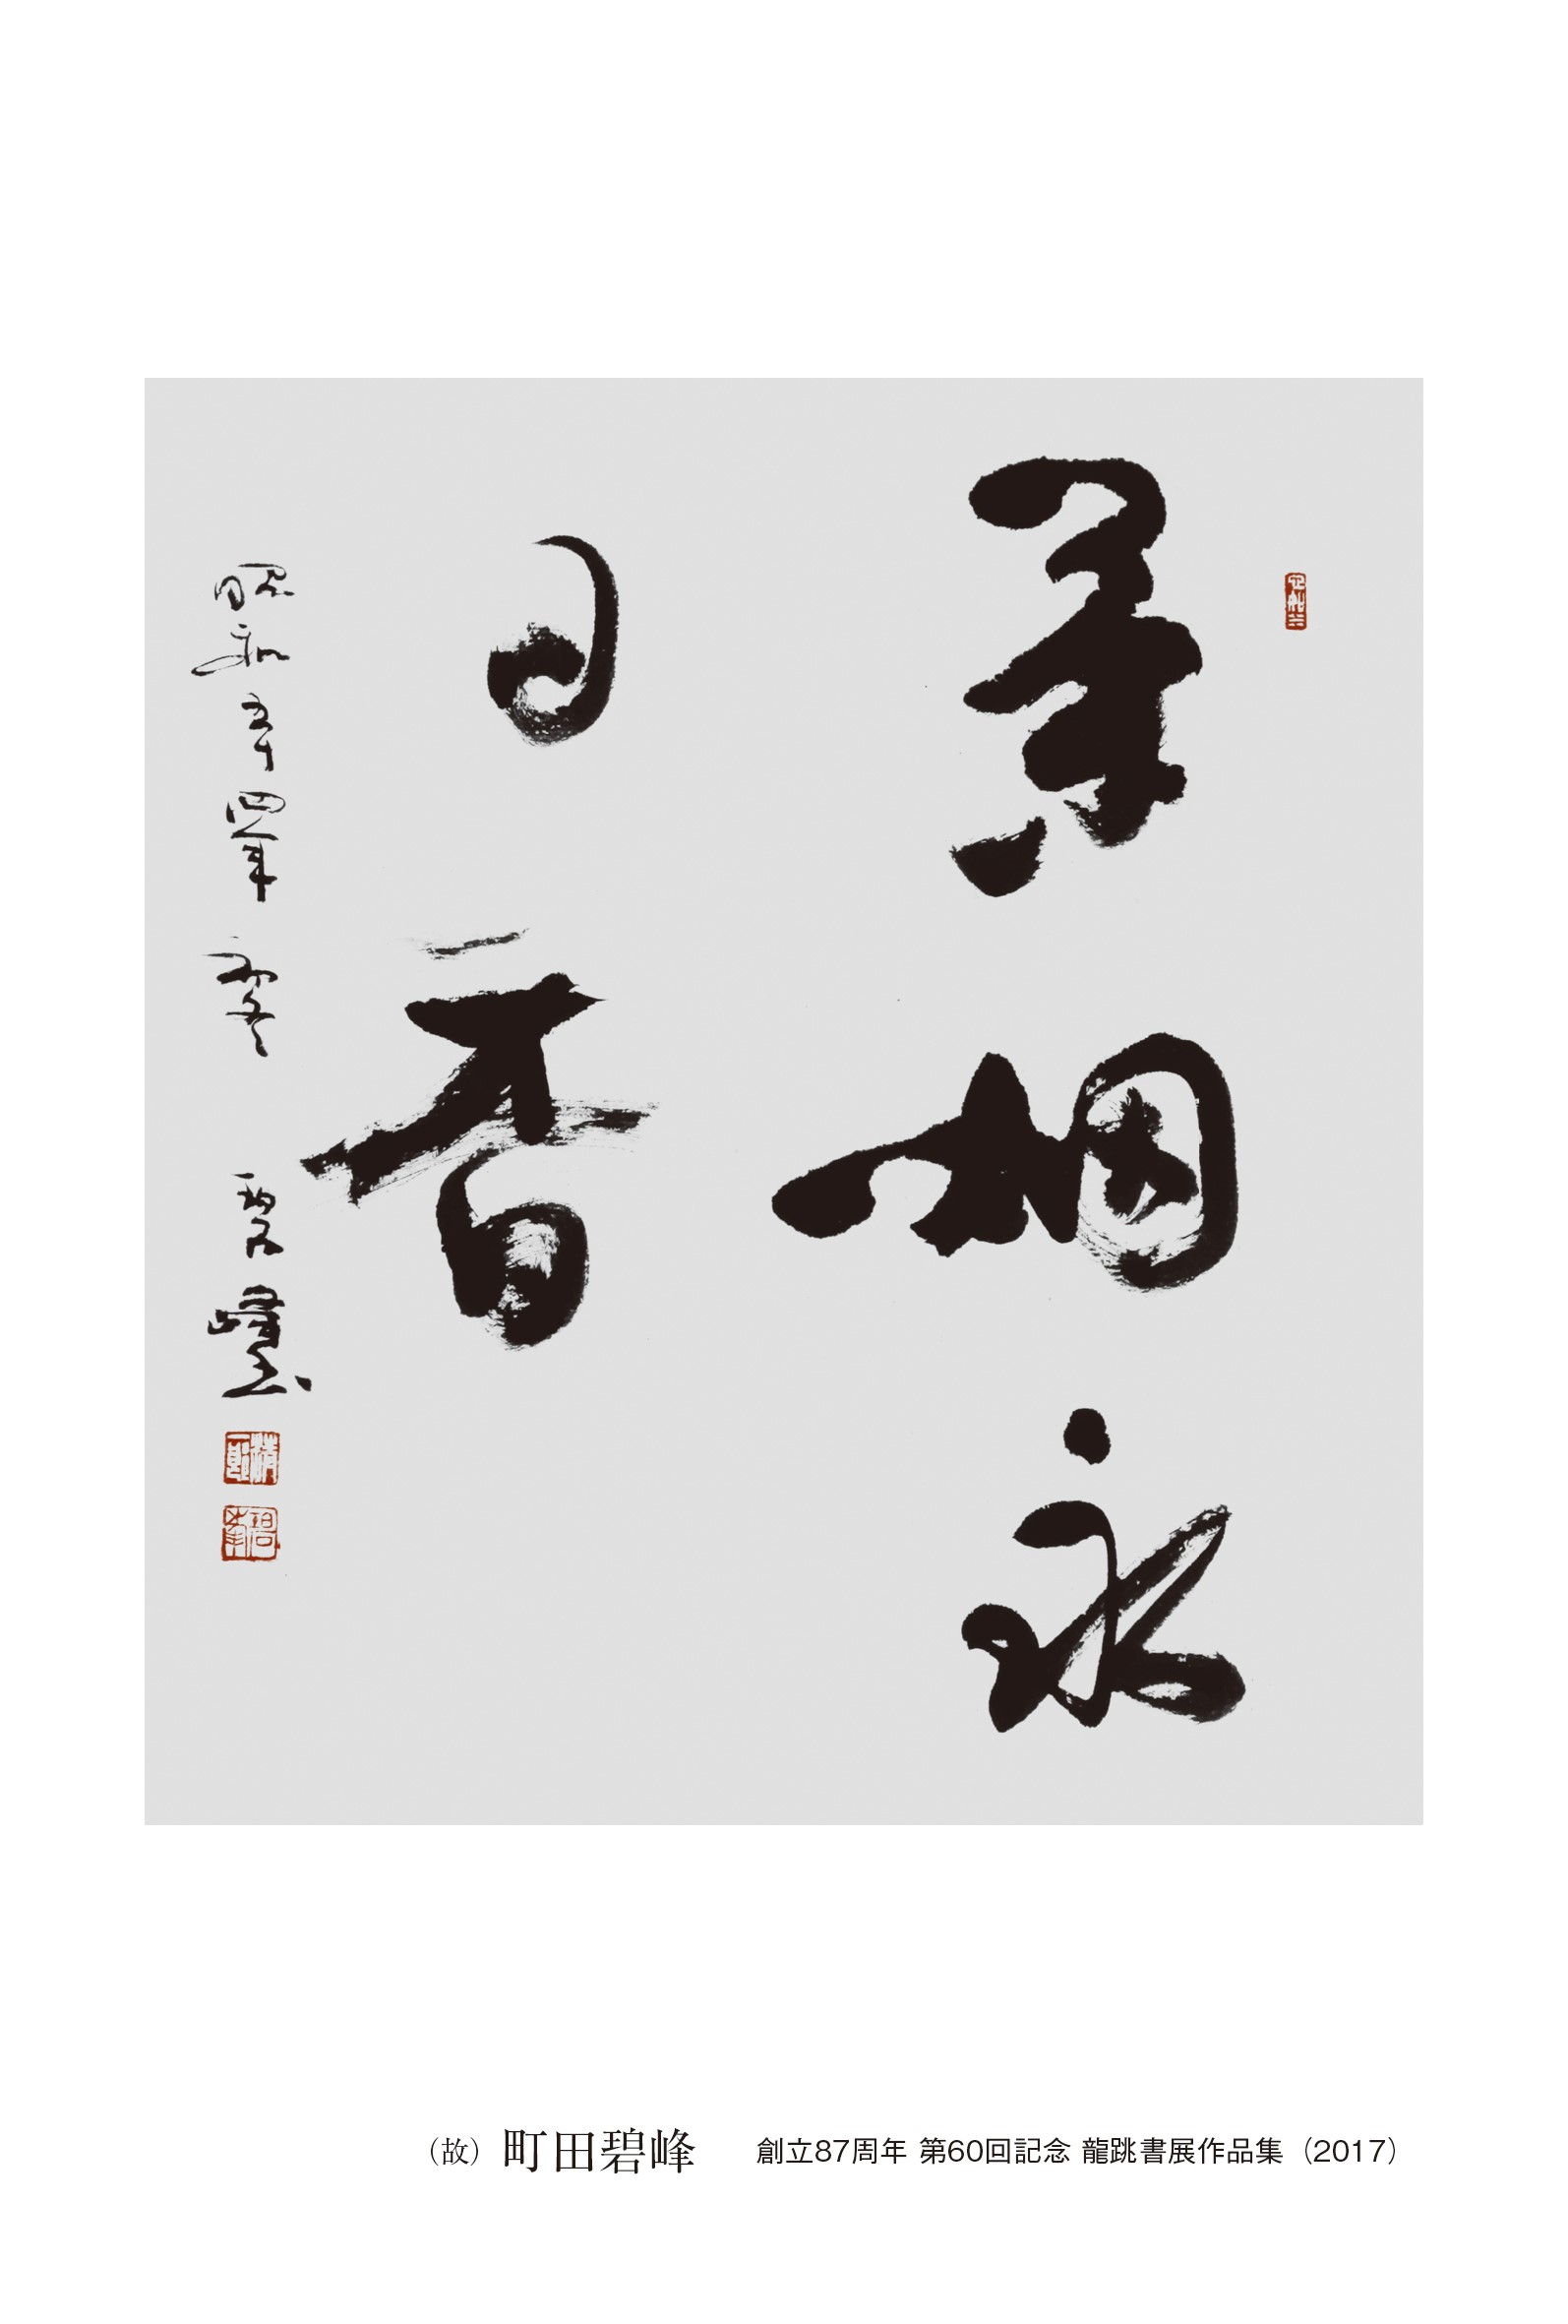 茶烟永
日香
昭和五十四年 初冬 碧峰書
(故) 町田碧峰 創立87周年 第60回記念 龍跳書展作品集(2017)